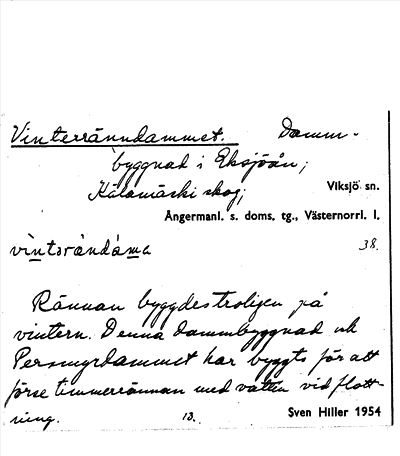 Vinterränndammet. Damm-
byggnad i Eksjöån;
Kälamäski skog; Viksjö sn.
Ångermanl. s. doms. tg., Västernorrl. l.
38.
Rännan byggdes troligen på
vintern. Denna dammbyggnad och
Persmyrdammet har byggts för att
förse timmerrännan med vatten vid flott-
ning. Sven Hiller 1954